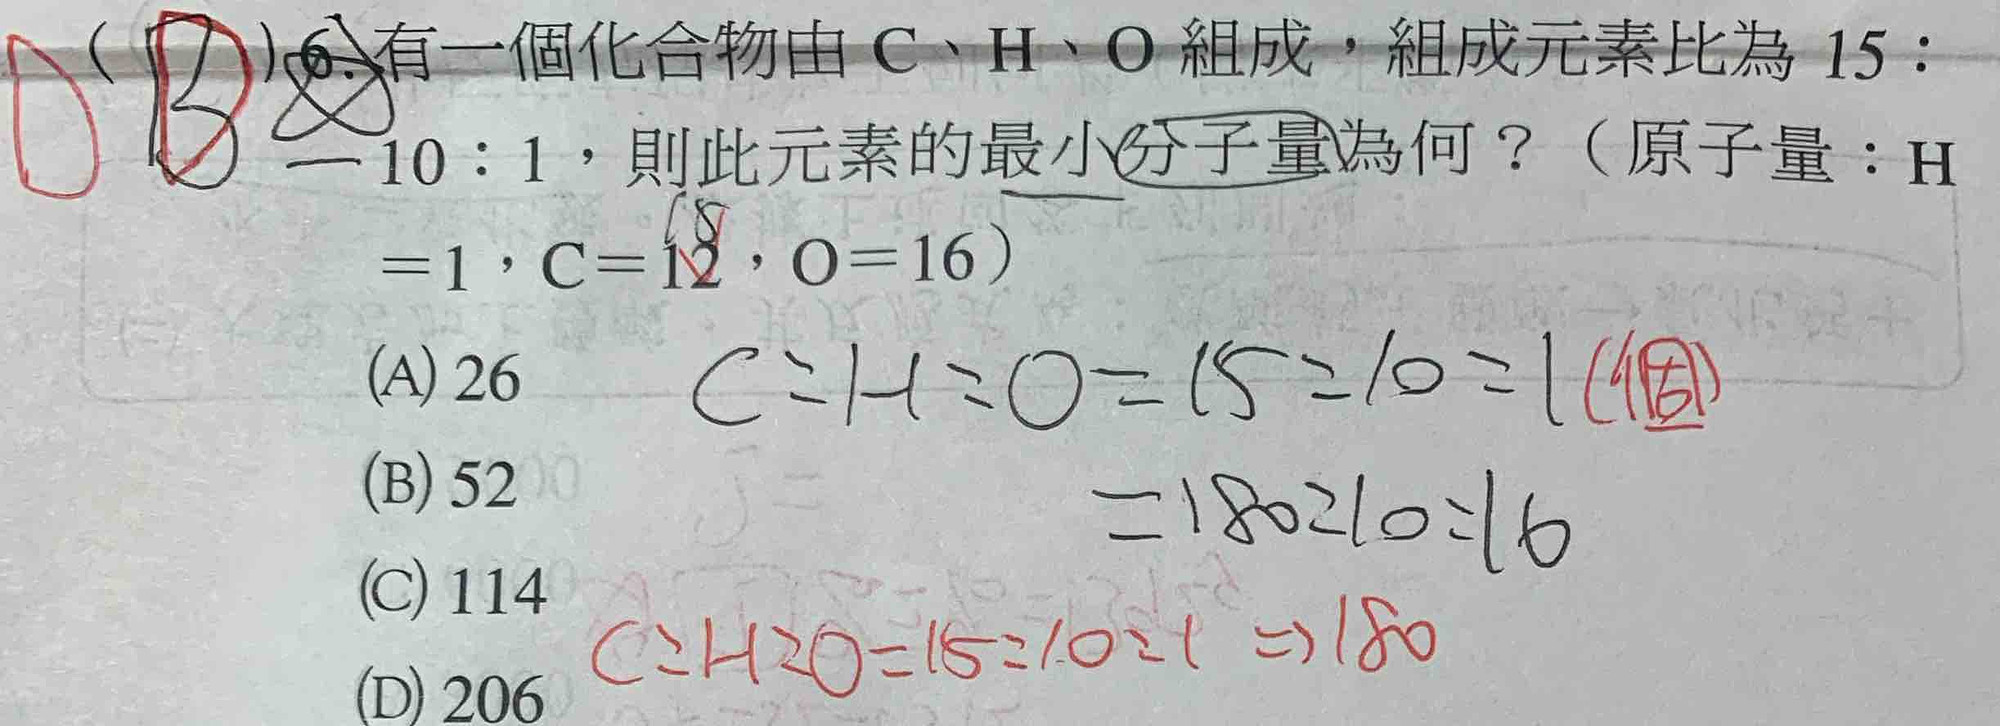 D ( B ) 6. 有一個化合物由 C、H、O 組成，組成元素比為 15：
10：1，則此元素的最小分子量為何？（原子量：H
18
＝1，C＝12，O＝16）
(A) 26
C:H:O=15:10:1(個)
(B) 52
=180:10:16
(C) 114
C:H:O=15:10:1 ⇒180
(D) 206